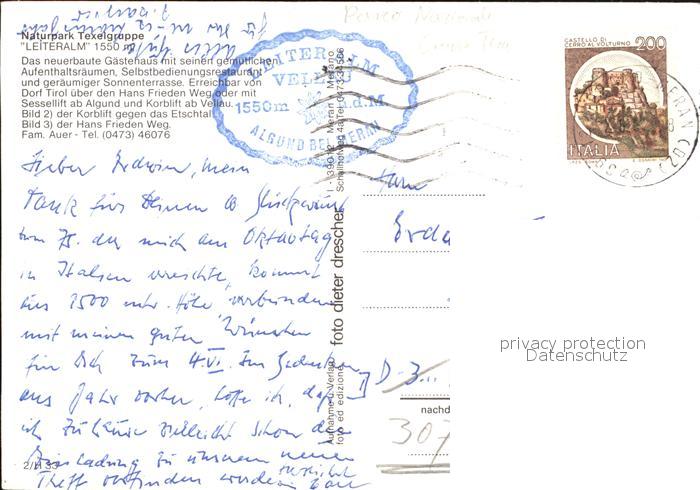 Naturpark Texelgruppe
"LEITERALM" 1550 m
Das neuerbaute Gästehaus mit seinen gemütlichen
Aufenthaltsräumen, Selbstbedienungsrestaurant
und geräumiger Sonnenterrasse. Erreichbar von
Dorf Tirol über den Hans Frieden Weg oder mi
Sessellift ab Algund und Korblift ab Vellau.
Bild 2) der Korblift gegen das Etschtal
Bild 3) der Hans Frieden Weg.
Fam. Auer - Tel. (0473) 46076
LEITERALM
VELLAU
1550m ü.d.M
ALGUND BEI MERAN
CASTELLO DI
CERRO AL VOLTURNO 200
ITALIA
Lieber Erdwin, mein
Dank für Deinen Glückwunsch
zum 75. der mich am Oktavtag
in Italien erreichte, kommt
aus 1500 mtr. Höhe verbunden
mit meinen guten Wünschen
für Dich zum 4.VI. Im Gedenken
ans Jahr vorher, hoffe ich, daß
ich zuhause vielleicht schon die
Einladung zu unserem neuen
Treff vorfinden werde
Herrn
Erd
D-3
307
nachd
foto dieter drescher
Aufnahme u. Verlag
foto ed edizione
39012 Meran / Merano
2/H 33
privacy protection
Datenschutz